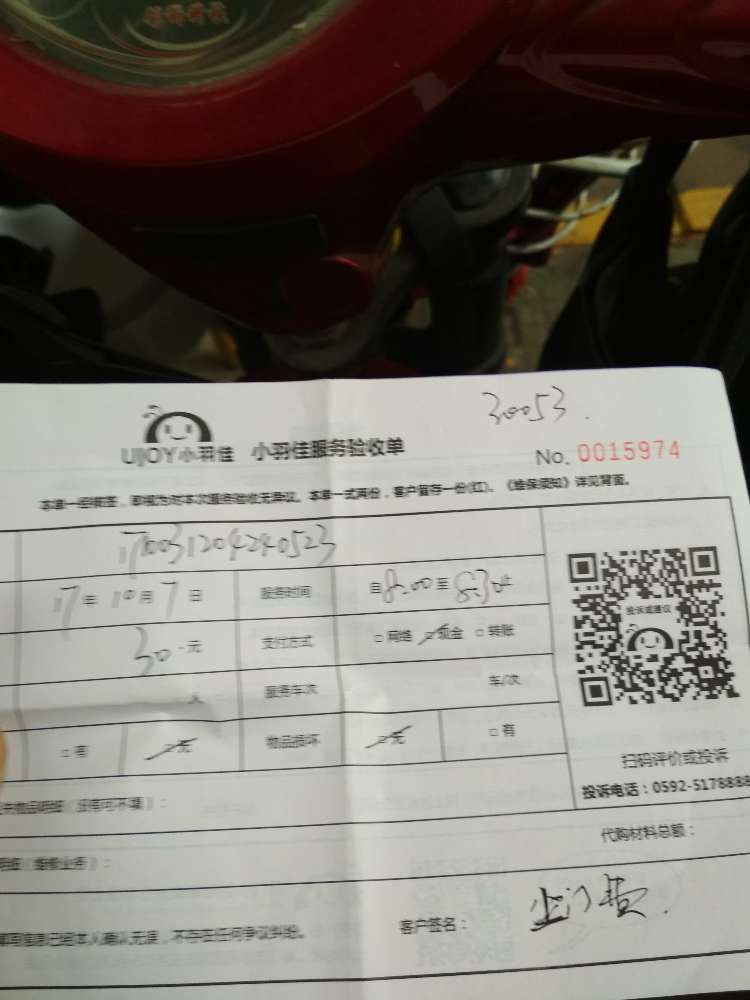 30053.
UIJOY小羽佳 小羽佳服务验收单
No. 0015974
本单一经签签，即视为对本次服务验收无异议。本单一式两份，客户留存一份(红)。《维保须知》详见背面。
1710031204240523
17年10月7日 服务时间 自8:00至8:30止
30-元 支付方式 □网络 ☑现金 □转账
人 服务车次 车/次
□有 ☑无 物品损坏 ☑无 □有
投诉或建议
扫码评价或投诉
投诉电话：0592-5178888
物品明细（没有可不填）：
代购材料总额：
明细（维修业务）：
填写信息已经本人确认无误，不存在任何争议纠纷。
客户签名： 上门费.